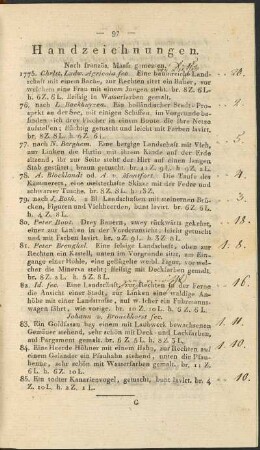 — 97 —
Handzeichnungen.
Nach französ. Maafs gemessen.
1775. Christ. Ludw. Agricola fec. Eine baumreiche Land-
schaft mit einem Bache, zur Rechten sitzt ein Bauer, vor
welchem eine Frau mit einem Jungen steht. br. 8Z. 6L.
h. 6Z. 6L. fleifsig in Wasserfarben gemalt.
76, nach L. Backhuyzen. Ein holländischer Stadt-Pros-
spekt an der See, mit einigen Schiffen, im Vorgrunde be-
finden sich drey Fischer in einem Boote die ihre Netze
ausleeren. fleifsig getuscht und leicht mit Farben lavirt.
br. 8Z. 8L. h. 6Z.
77. nach N. Berghem. Eine felsige Landschaft mit Vieh,
zur Linken die Hirtin mit einem Kinde auf der Erde
sitzend, zur Seite steht der Hirt auf einen jungen
Stab gestützt. getuscht. br. 11 Z. 9L. h. 8Z. 4L.
78. A. Blocklandt od. A. v. Montfort. Die Taufe des
Kämmerers, eine meisterhafte Skizze mit der Feder und
schwarzer Tusche. br. 10Z. 6L. h. 8½Z.
79. nach J. Both. 2 Bl. Landschaften mit meisenen Brü-
cken, Figuren und Viehheerden, bunt lavirt. br. 6Z. 6L.
h. 4Z. 8L.
80. Peter Bout. Drey Bauern, zwey rückwärts gekehrt,
einer zur Linken in der Vorderansicht, leicht getuscht
und mit Farben lavirt. br. 4Z. 4L. h. 5Z. 2L.
81. Peter Brenghel. Eine felsige Landschaft, oben zur
Rechten ein Kastell, im Vorgrunde sitzt, am Ein-
gange einer Höhle, eine geflügelte weibl. Figur, vor wel-
cher die Minerva steht. fleifsig mit Deckfarben gemalt.
br. 7Z. 10L. h. 5Z. 2L.
82. Id. fec. Eine Landschaft, zur Rechten in der Ferne
die Ansicht einer Stadt, zur Linken eine waldige An-
höhe mit einer Landstrafse, auf w. leber ein Fuhrmanns-
wagen fährt, wie vorher. br. 10Z. 2L. h. 6 Z. 6L.
Johann v. Bronckhorst fec.
83. Ein Goldfasan bey einem mit Laubwerk bewachsenen
Gemäuer stehend, sehr schön mit Deck- und Lackfarben,
auf Pergament gemalt. br. 6 Z. 8L. h. 8Z. 3L.
84. Eine Heerde Hühner mit einem Hahn, zur Rechten auf
einem Gelander ein Pfauhahn stehend, unten die Pfau-
henne, sehr schön mit Wasserfarben gemalt. br. 10Z.
h. 6Z. 10L.
85. Ein todter Kanarienvogel, getuscht, bunt lavirt. br. 4
Z. 10L. h. 2Z. 2L.
G